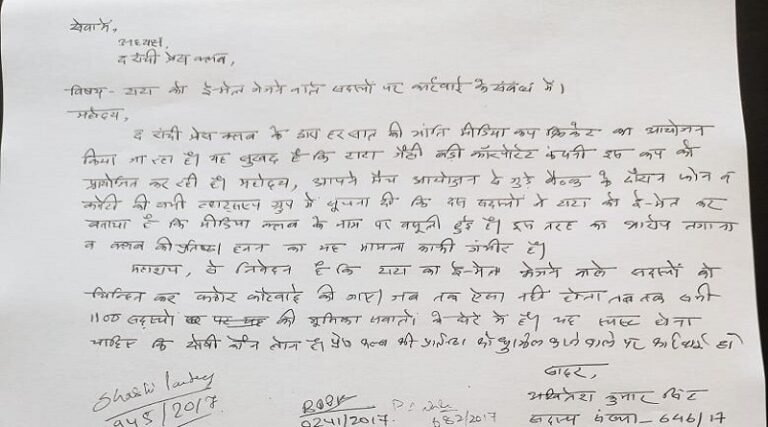 सेवा में,
अध्यक्ष,
द रांची प्रेस क्लब,
विषय - टाटा को ई-मेल भेजने वाले सदस्यों पर कार्रवाई के संबंध में।
महोदय,
द रांची प्रेस क्लब के द्वारा हर साल की भांति मीडिया कप क्रिकेट का आयोजन
किया जा रहा है। यह सुखद है कि टाटा जैसी बड़ी कॉरपोरेट कंपनी इस कप को
प्रायोजित कर रही है। महोदय, आपने मैच आयोजन से जुड़े बैठक के दौरान फोन व
कमेटी की सभी व्हाट्सएप ग्रुप में सूचना दी कि दस सदस्यों ने टाटा को ई-मेल कर
बताया है कि मीडिया क्लब के नाम पर वसूली हुई है। इस तरह का आरोप लगाना
व क्लब की प्रतिष्ठा हनन का यह मामला काफी गंभीर है।
महाशय, से निवेदन है कि टाटा का ई-मेल भेजने वाले सदस्यों को
चिन्हित कर कठोर कार्रवाई की जाए। जब तक ऐसा नहीं होता तब तक सभी
1100 सदस्यों की भूमिका सवालों के घेरे में है। यह स्पष्ट होना
चाहिए कि दोषी कौन लोग हैं। प्रेस क्लब की को धूमिल करने वाले पर कार्रवाई हो
सादर,
कुमार सिंह
सदस्य संख्या - 646/17
Shashi Pandey
945/2017
0241/2017
682/2017